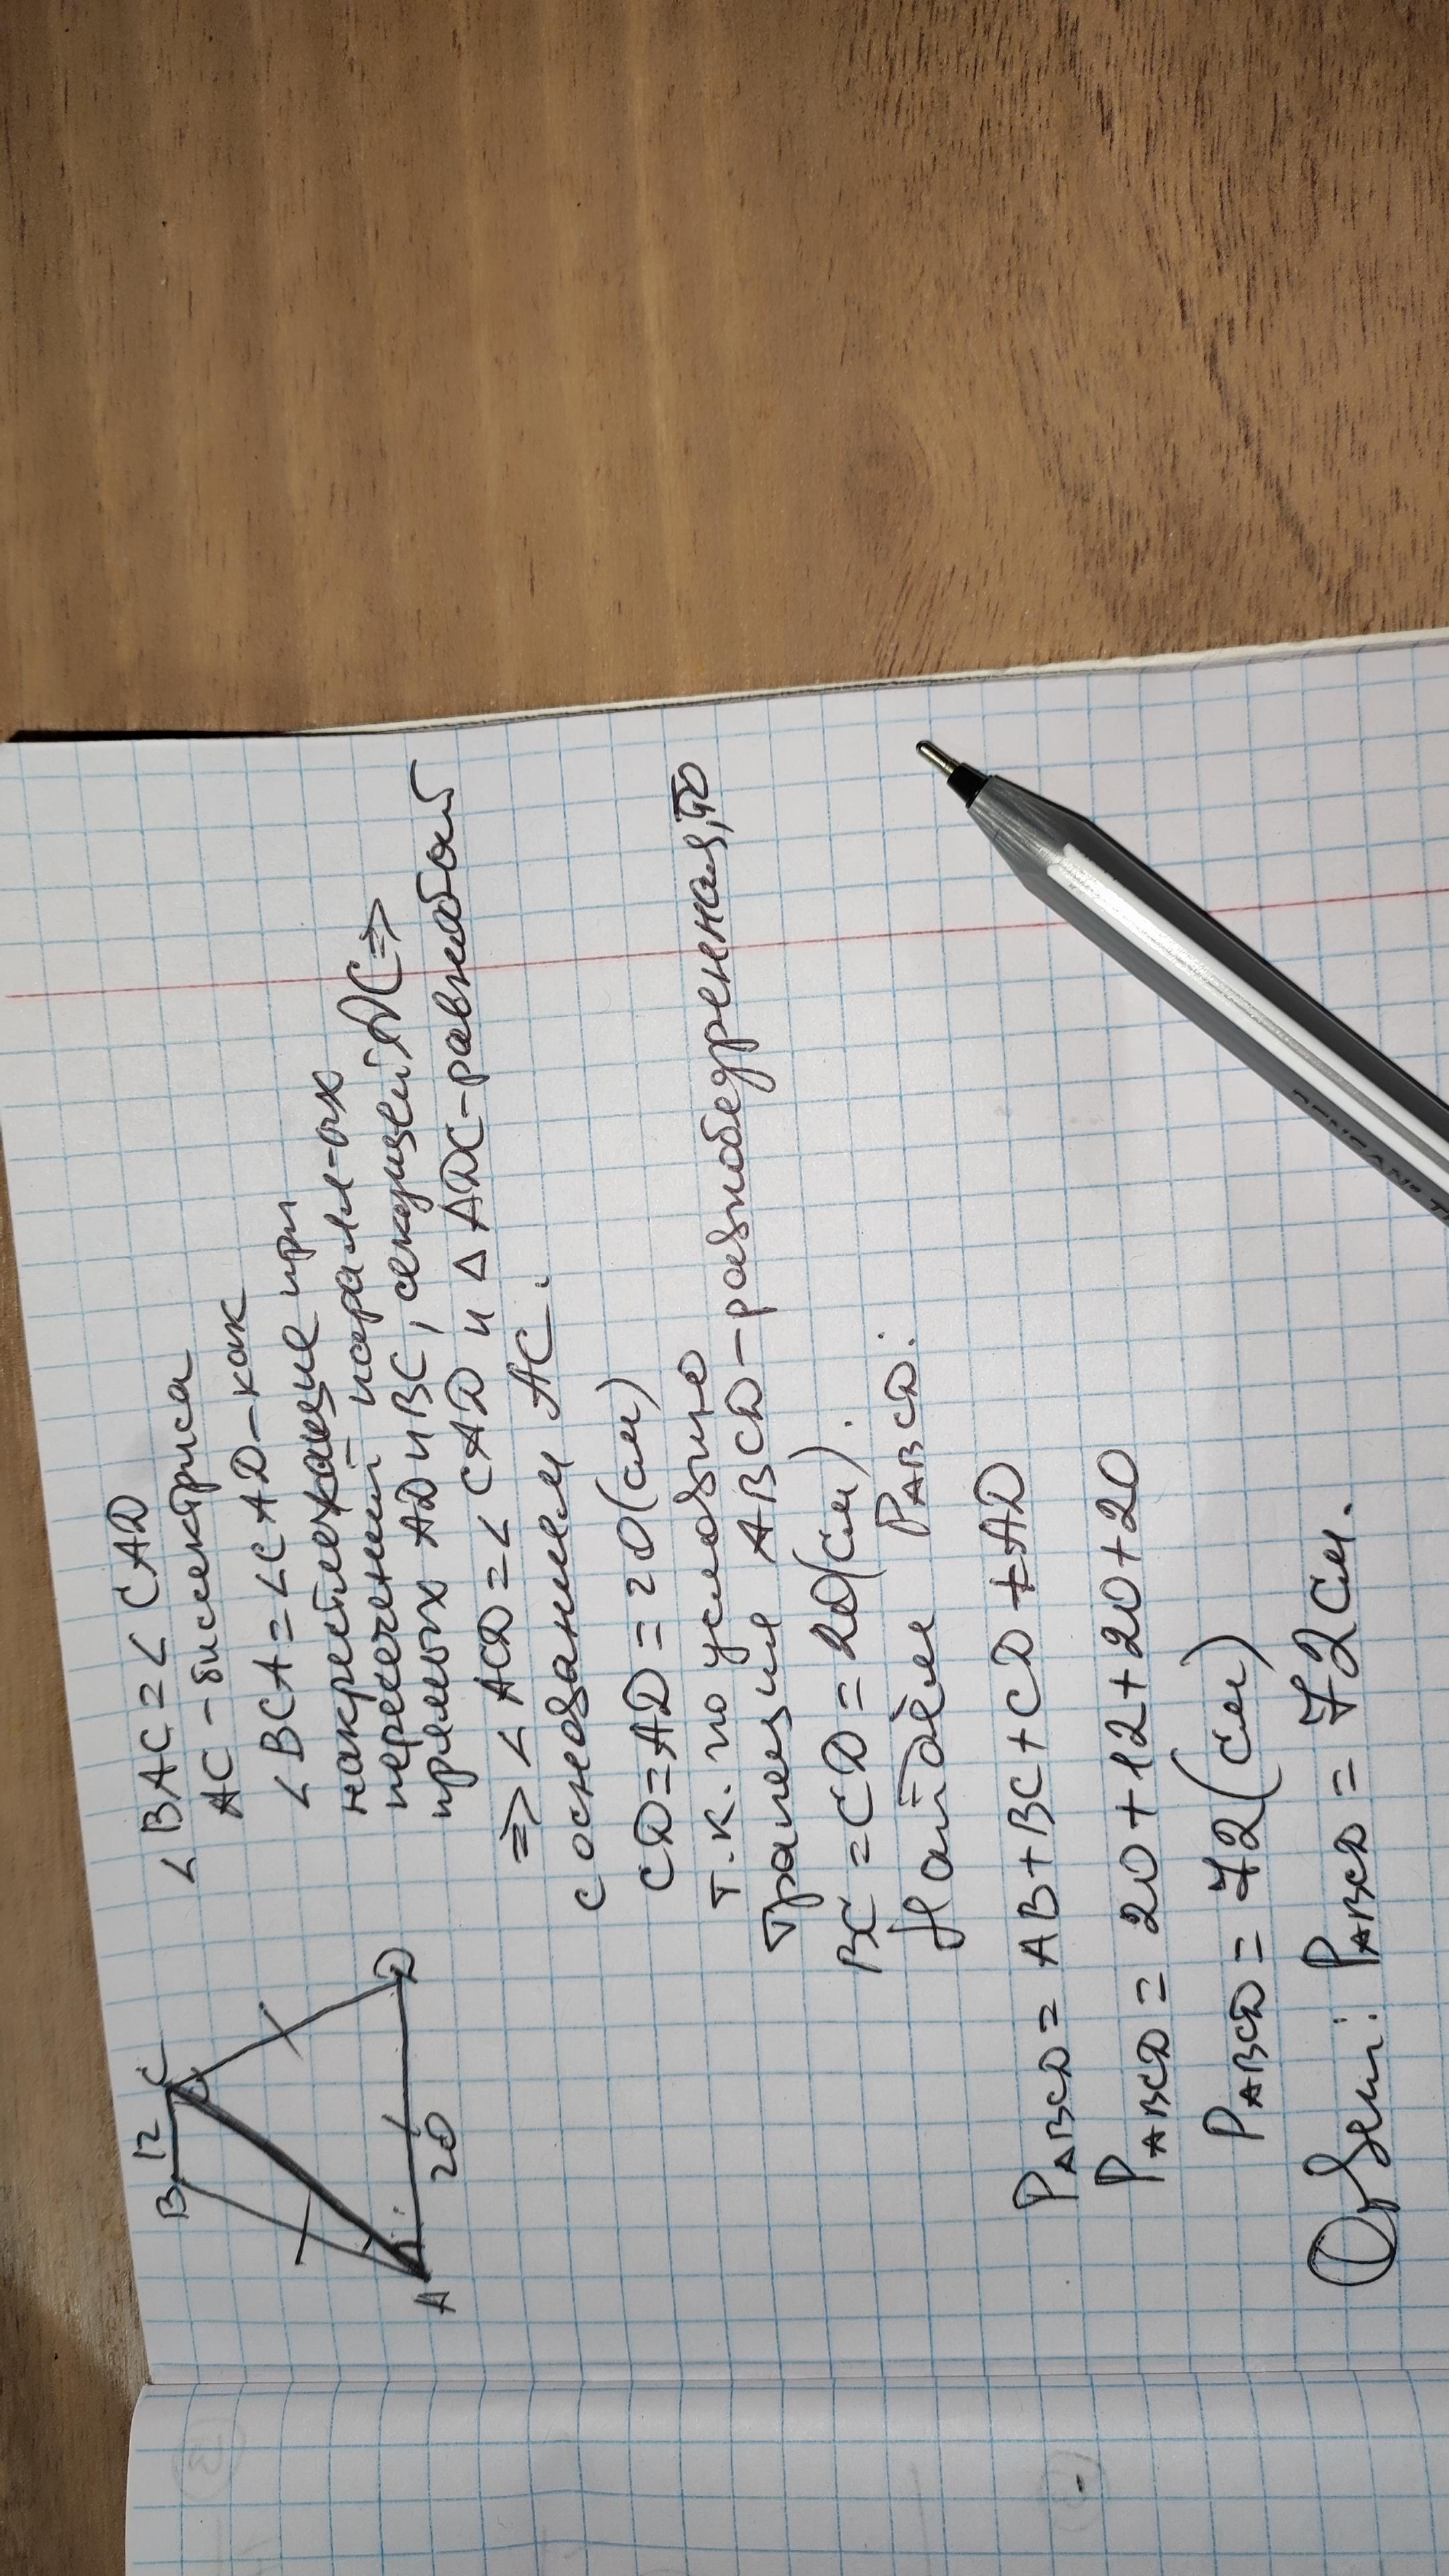 B 12 C
A 20 D
∠ BAC = ∠ CAD
AC - биссектриса
∠ BCA = ∠ CAD - как
накрестлежащие при
пересечений паралл-ых
прямых AD и BC, секущей AC =>
=> ∠ ACD = ∠ CAD и △ ADC - равнобат
с основанием AC.
CD = AD = 20 (см)
т.к. по условию
трапезия ABCD - равнобедренная, то
BC = CD = 20 (см).
Найдём P ABCD:
P ABCD = AB + BC + CD + AD
P ABCD = 20 + 12 + 20 + 20
P ABCD = 72 (см)
Ответ: P ABCD = 72 см.